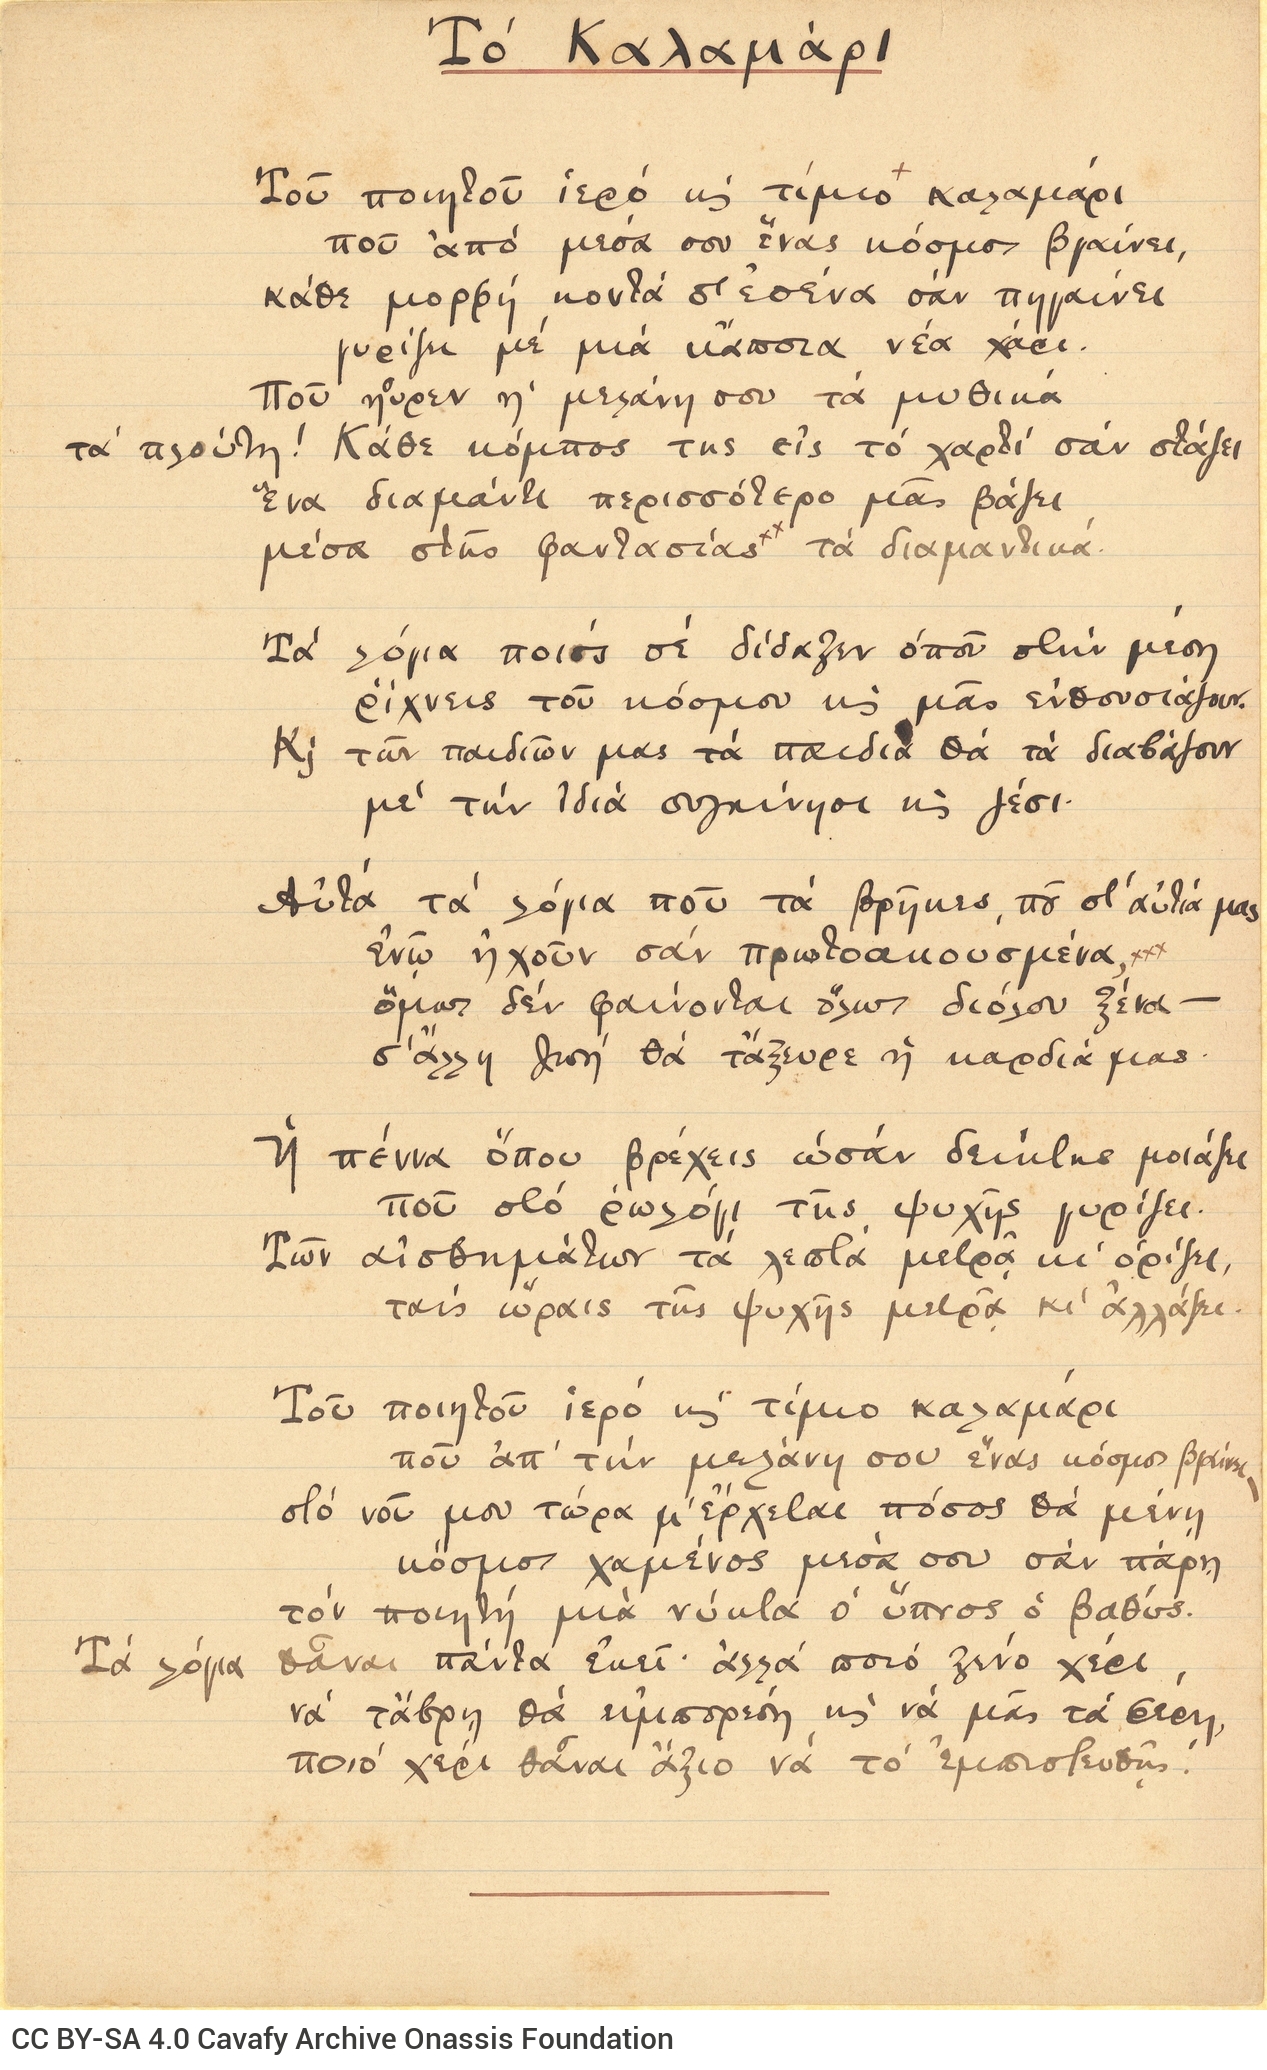 Τό Καλαμάρι
Τοῦ ποιητοῦ ἱερό κὶ τίμιο+ καλαμάρι
ποῦ ἀπό μέσα σου ἕνας κόσμος βγαίνει,
κάθε μορφή κοντά σ' ἐσένα σάν πηγαίνει
γυρίζει μέ μιά κἄποια νέα χάρι.
Ποῦ ηὗρεν ἡ μελάνη σου τά μυθικά
τά πλούτη! Κάθε κόμπος της εἰς τό χαρτί σάν στάζει
ἕνα διαμάντι περισσότερο μᾶς βάζει
μέσα στῆς φαντασίας×× τά διαμαντικά.
Τά λόγια ποιός σέ δίδαξεν ὁποῦ στήν μέση
ρίχνεις τοῦ κόσμου κὶ μᾶς ἐνθουσιάζουν.
Κὶ τῶν παιδιῶν μας τά παιδιά θά τά διαβάζουν
μέ τήν ἰδιά συγκίνησι κὶ ζέσι.
Αὐτά τά λόγια ποῦ τά βρῆκες, ποῦ στ' αὐτιά μας
ἐνῷ ἠχοῦν σάν πρωτοακουσμένα,×××
ὅμως δέν φαίνονται ὅλως διόλου ξένα —
σ' ἄλλη ζωή θά τἄξευρε ἡ καρδιά μας.
Ἡ πέννα ὅπου βρέχεις ὡσάν δείκτης μοιάζει
ποῦ στό ρωλόγι τῆς ψυχῆς γυρίζει.
Τῶν αἰσθημάτων τά λεπτά μετρᾷ κι' ὁρίζει,
ταίς ὥραις τῆς ψυχῆς μετρᾷ κι' ἀλλάζει.
Τοῦ ποιητοῦ ἱερό κὶ τίμιο καλαμάρι
ποῦ ἀπ' τήν μελάνη σου ἕνας κόσμος βγαίνει,
στό νοῦ μου τώρα μ' ἔρχεται πόσος θά μένῃ
κόσμος χαμένος μέσα σου σάν πάρῃ
τόν ποιητή μιά νύκτα ὁ ὕπνος ὁ βαθύς.
Τά λόγια θἆναι πάντα ἐκεῖ· ἀλλά ποιό ξένο χέρι,
νά τἄβρῃ θά ἠμπορέσῃ κὶ νά μᾶς τά φέρῃ,
ποιό χέρι θἆναι ἄξιο νά τό ἐμπιστευθῇς!
CC BY-SA 4.0 Cavafy Archive Onassis Foundation